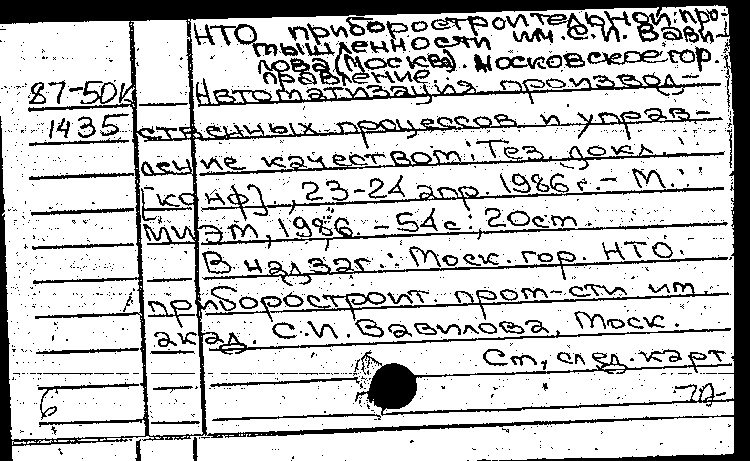 НТО приборостроительной про-
мышленности им. С.И. Вави-
лова (Москва). Московское гор.
правление.
87-50К Автоматизация производ-
1435 ственных процессов и управ-
ление качеством: Тез. докл.
[конф], 23-24 апр. 1986 г. - М.:
МИЭМ, 1986. - 54 с.; 20 см.
В надзаг.: Моск. гор. НТО.
приборостроит. пром-сти им.
акад. С.И. Вавилова, Моск.
См. след. карт.
6